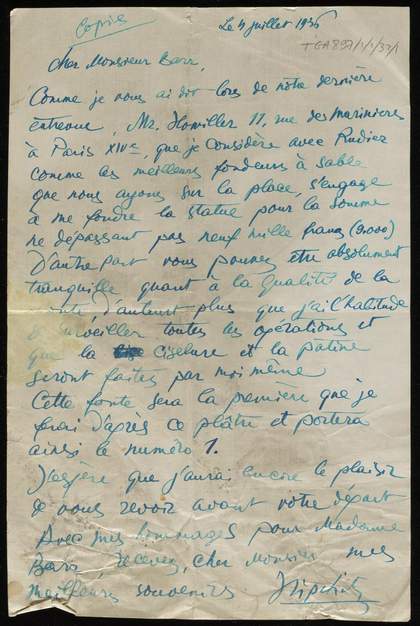 Copie
Le 4 juillet 1936
TGA 897/1/1/37/1
Cher Monsieur Barr,
Comme je vous ai dit lors de notre dernière
entrevue, Mr. Howiller 11, rue des Mariniers
à Paris XIVe, que je considère avec Rudier
comme les meilleurs fondeurs à sable
que nous ayons sur la place, s'engage
à me fondre la statue pour la somme
ne dépassant pas neuf mille francs (9.000)
D'autre part vous pouvez être absolument
tranquille quant à la qualité de la
fonte, d'autant plus que j'ai l'habitude
de surveiller toutes les opérations et
que la ciselure et la patine
seront faites par moi même
Cette fonte sera la première que je
ferai d'après ce plâtre et portera
ainsi le numéro 1.
J'espère que j'aurai encore le plaisir
de vous revoir avant votre départ
Avec mes hommages pour Madame
Barr, recevez, cher Monsieur mes
meilleurs souvenirs Lipchitz